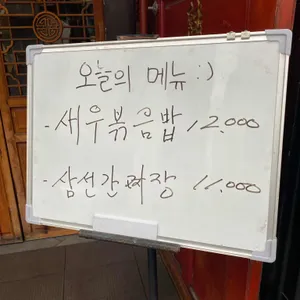 오늘의 메뉴 :)
- 새우볶음밥 12.000
- 삼선간짜장 11.000